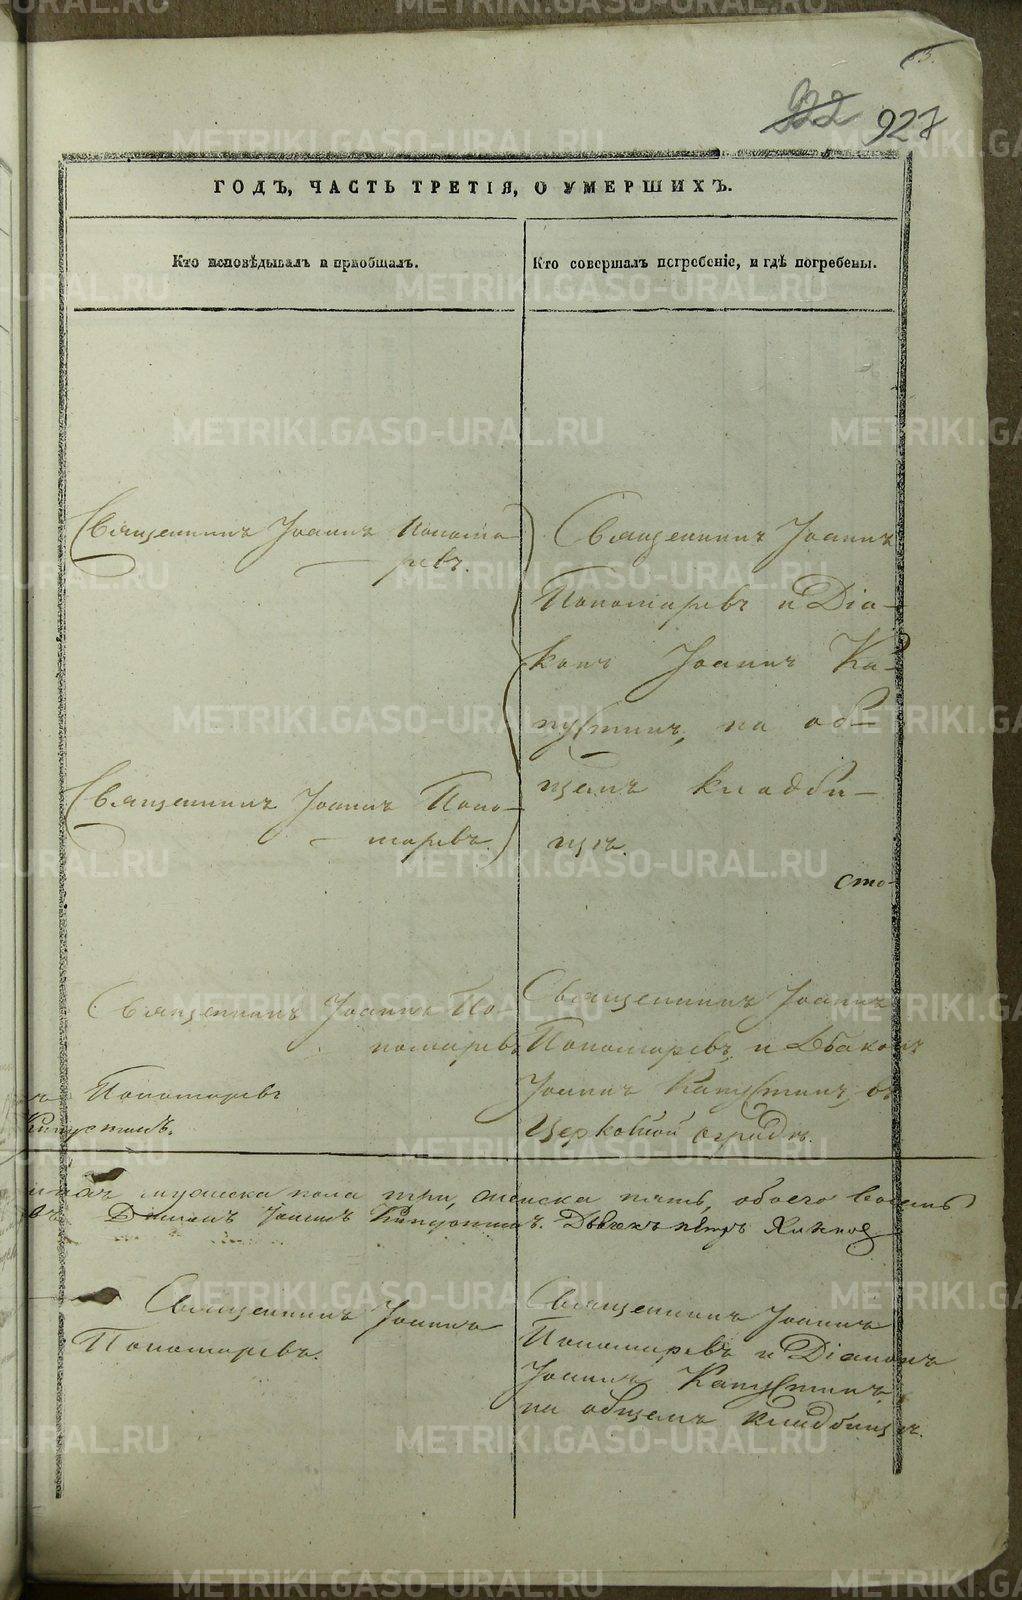 922 927
ГОДЪ, ЧАСТЬ ТРЕТІЯ, О УМЕРШИХЪ.
Кто исповѣдывалъ и пріобщалъ.
Кто совершалъ погребеніе, и гдѣ погребены.
Священникъ Іоаннъ Понома-
ревъ.
Священникъ Іоаннъ
Пономаревъ и Діа-
конъ Іоаннъ Ка-
пустинъ, на об-
щемъ кладби-
щѣ.
Священникъ Іоаннъ Поно-
маревъ.
сто-
Священникъ Іоаннъ По-
номаревъ
Священникъ Іоаннъ
Пономаревъ и Дьаконъ
Іоаннъ Капустинъ, въ
Церковной оградѣ.
Пономаревъ
Капустинъ.
мужеска пола три, женска пять, обоего восемь
Діаконъ Іоаннъ Капустинъ. Дьячекъ Петръ
Священникъ Іоаннъ
Пономаревъ.
Священникъ Іоаннъ
Пономаревъ и Діаконъ
Іоаннъ Капустинъ,
на общемъ кладбищѣ.
METRIKI.GASO-URAL.RU